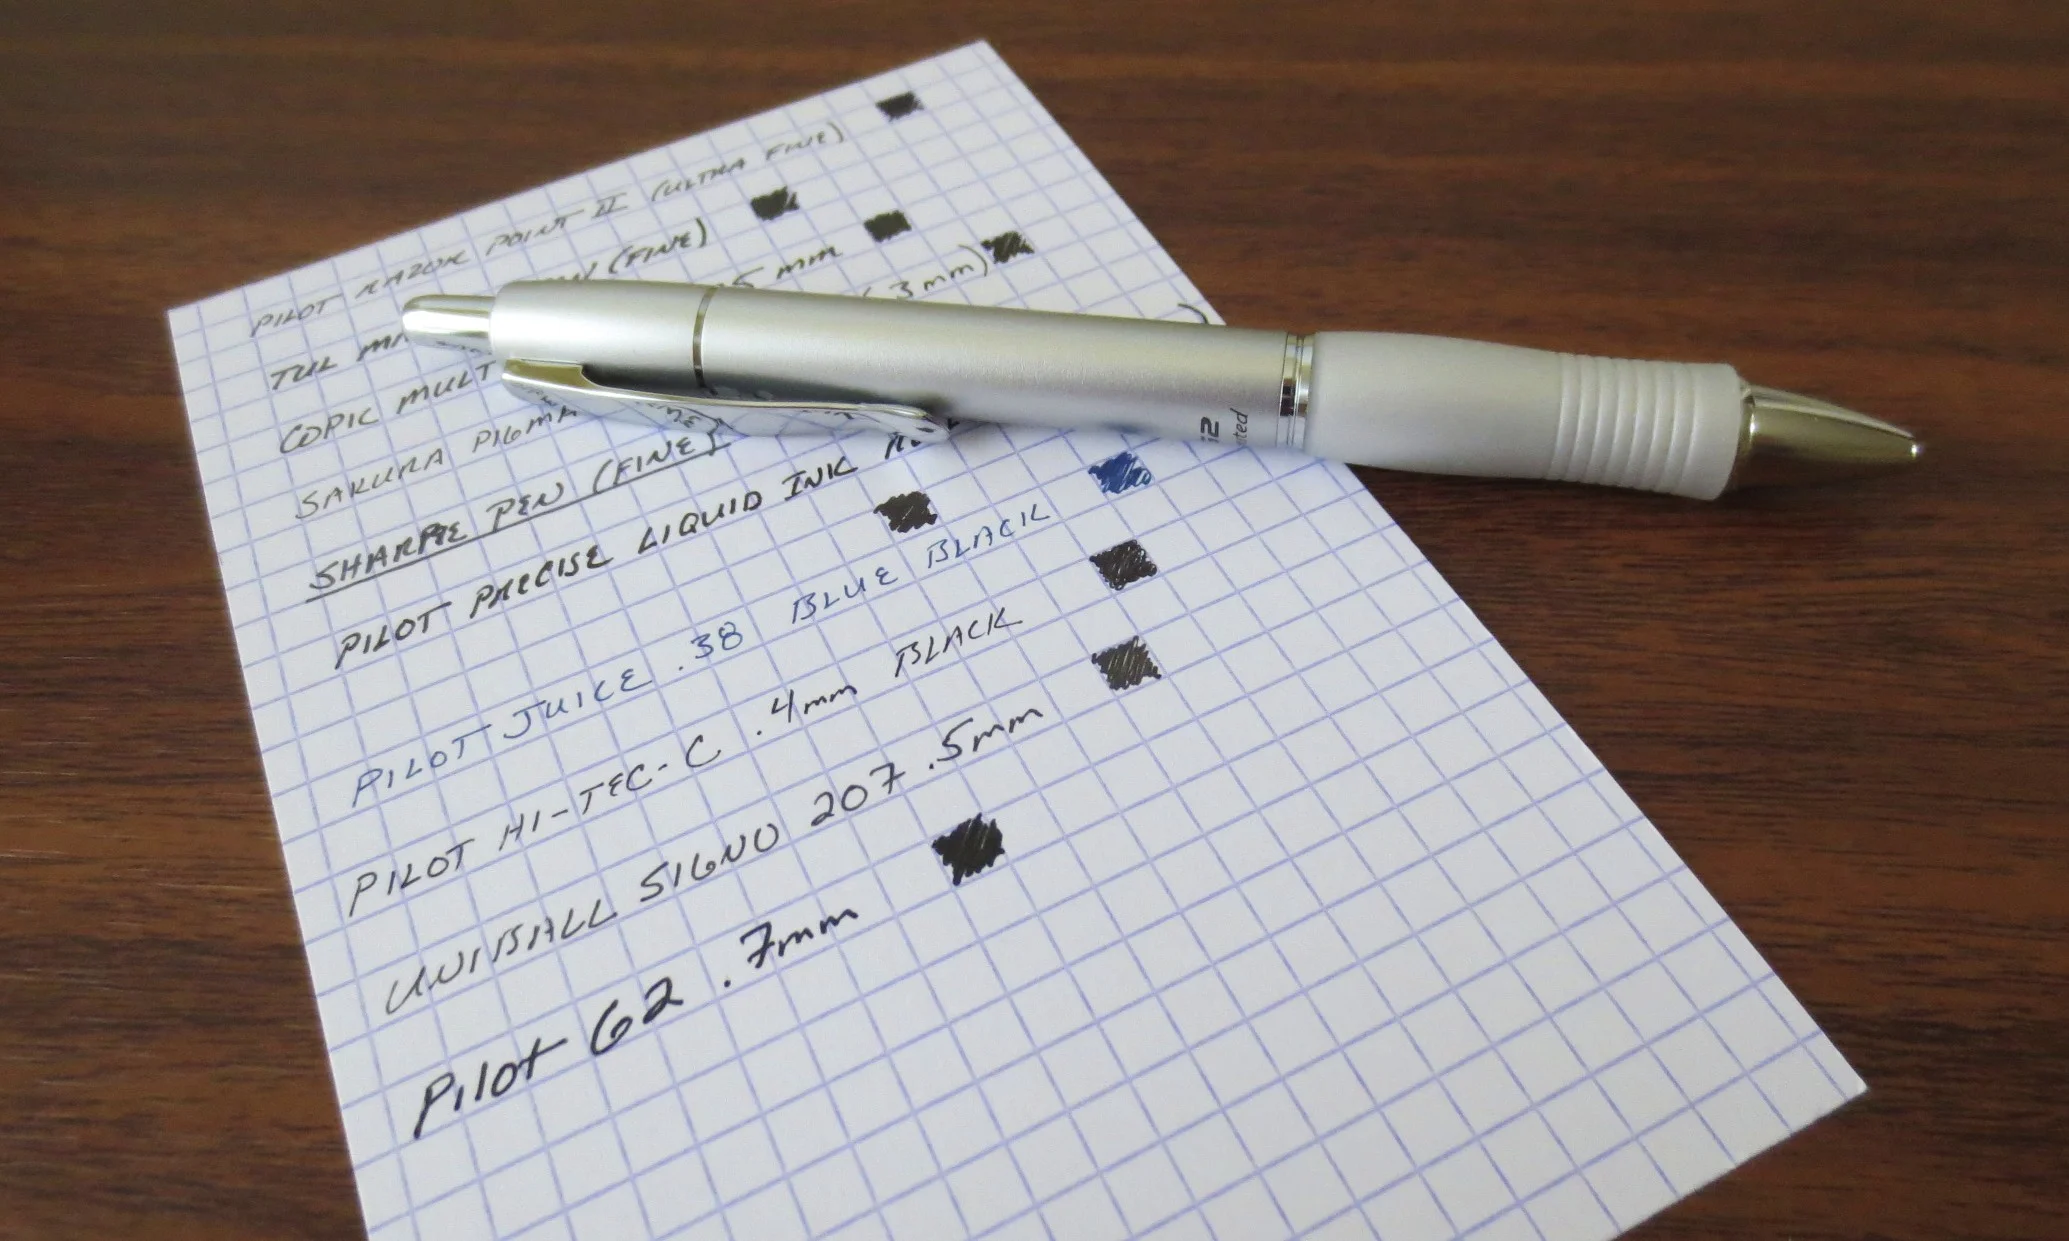 PILOT RAZOR POINT II (ULTRA FINE)
TUL (FINE)
COPIC MULT .5 mm
SAKURA PIGMA .3 mm)
SHARPIE PEN (FINE)
PILOT PRECISE LIQUID INK
PILOT JUICE .38 BLUE BLACK
PILOT HI-TEC-C .4mm BLACK
UNIBALL SIGNO 207 .5mm
Pilot G2 .7mm